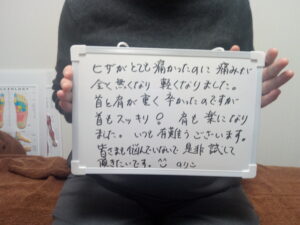 ヒザがとても痛かったのに 痛みが
全く無くなり 軽くなりました。
首と肩が重く 辛かったのですが
首もスッキリ! 肩も楽になり
ました。いつも有難うございます。
皆さまも悩んでいないで 是非 試して
頂きたいです。